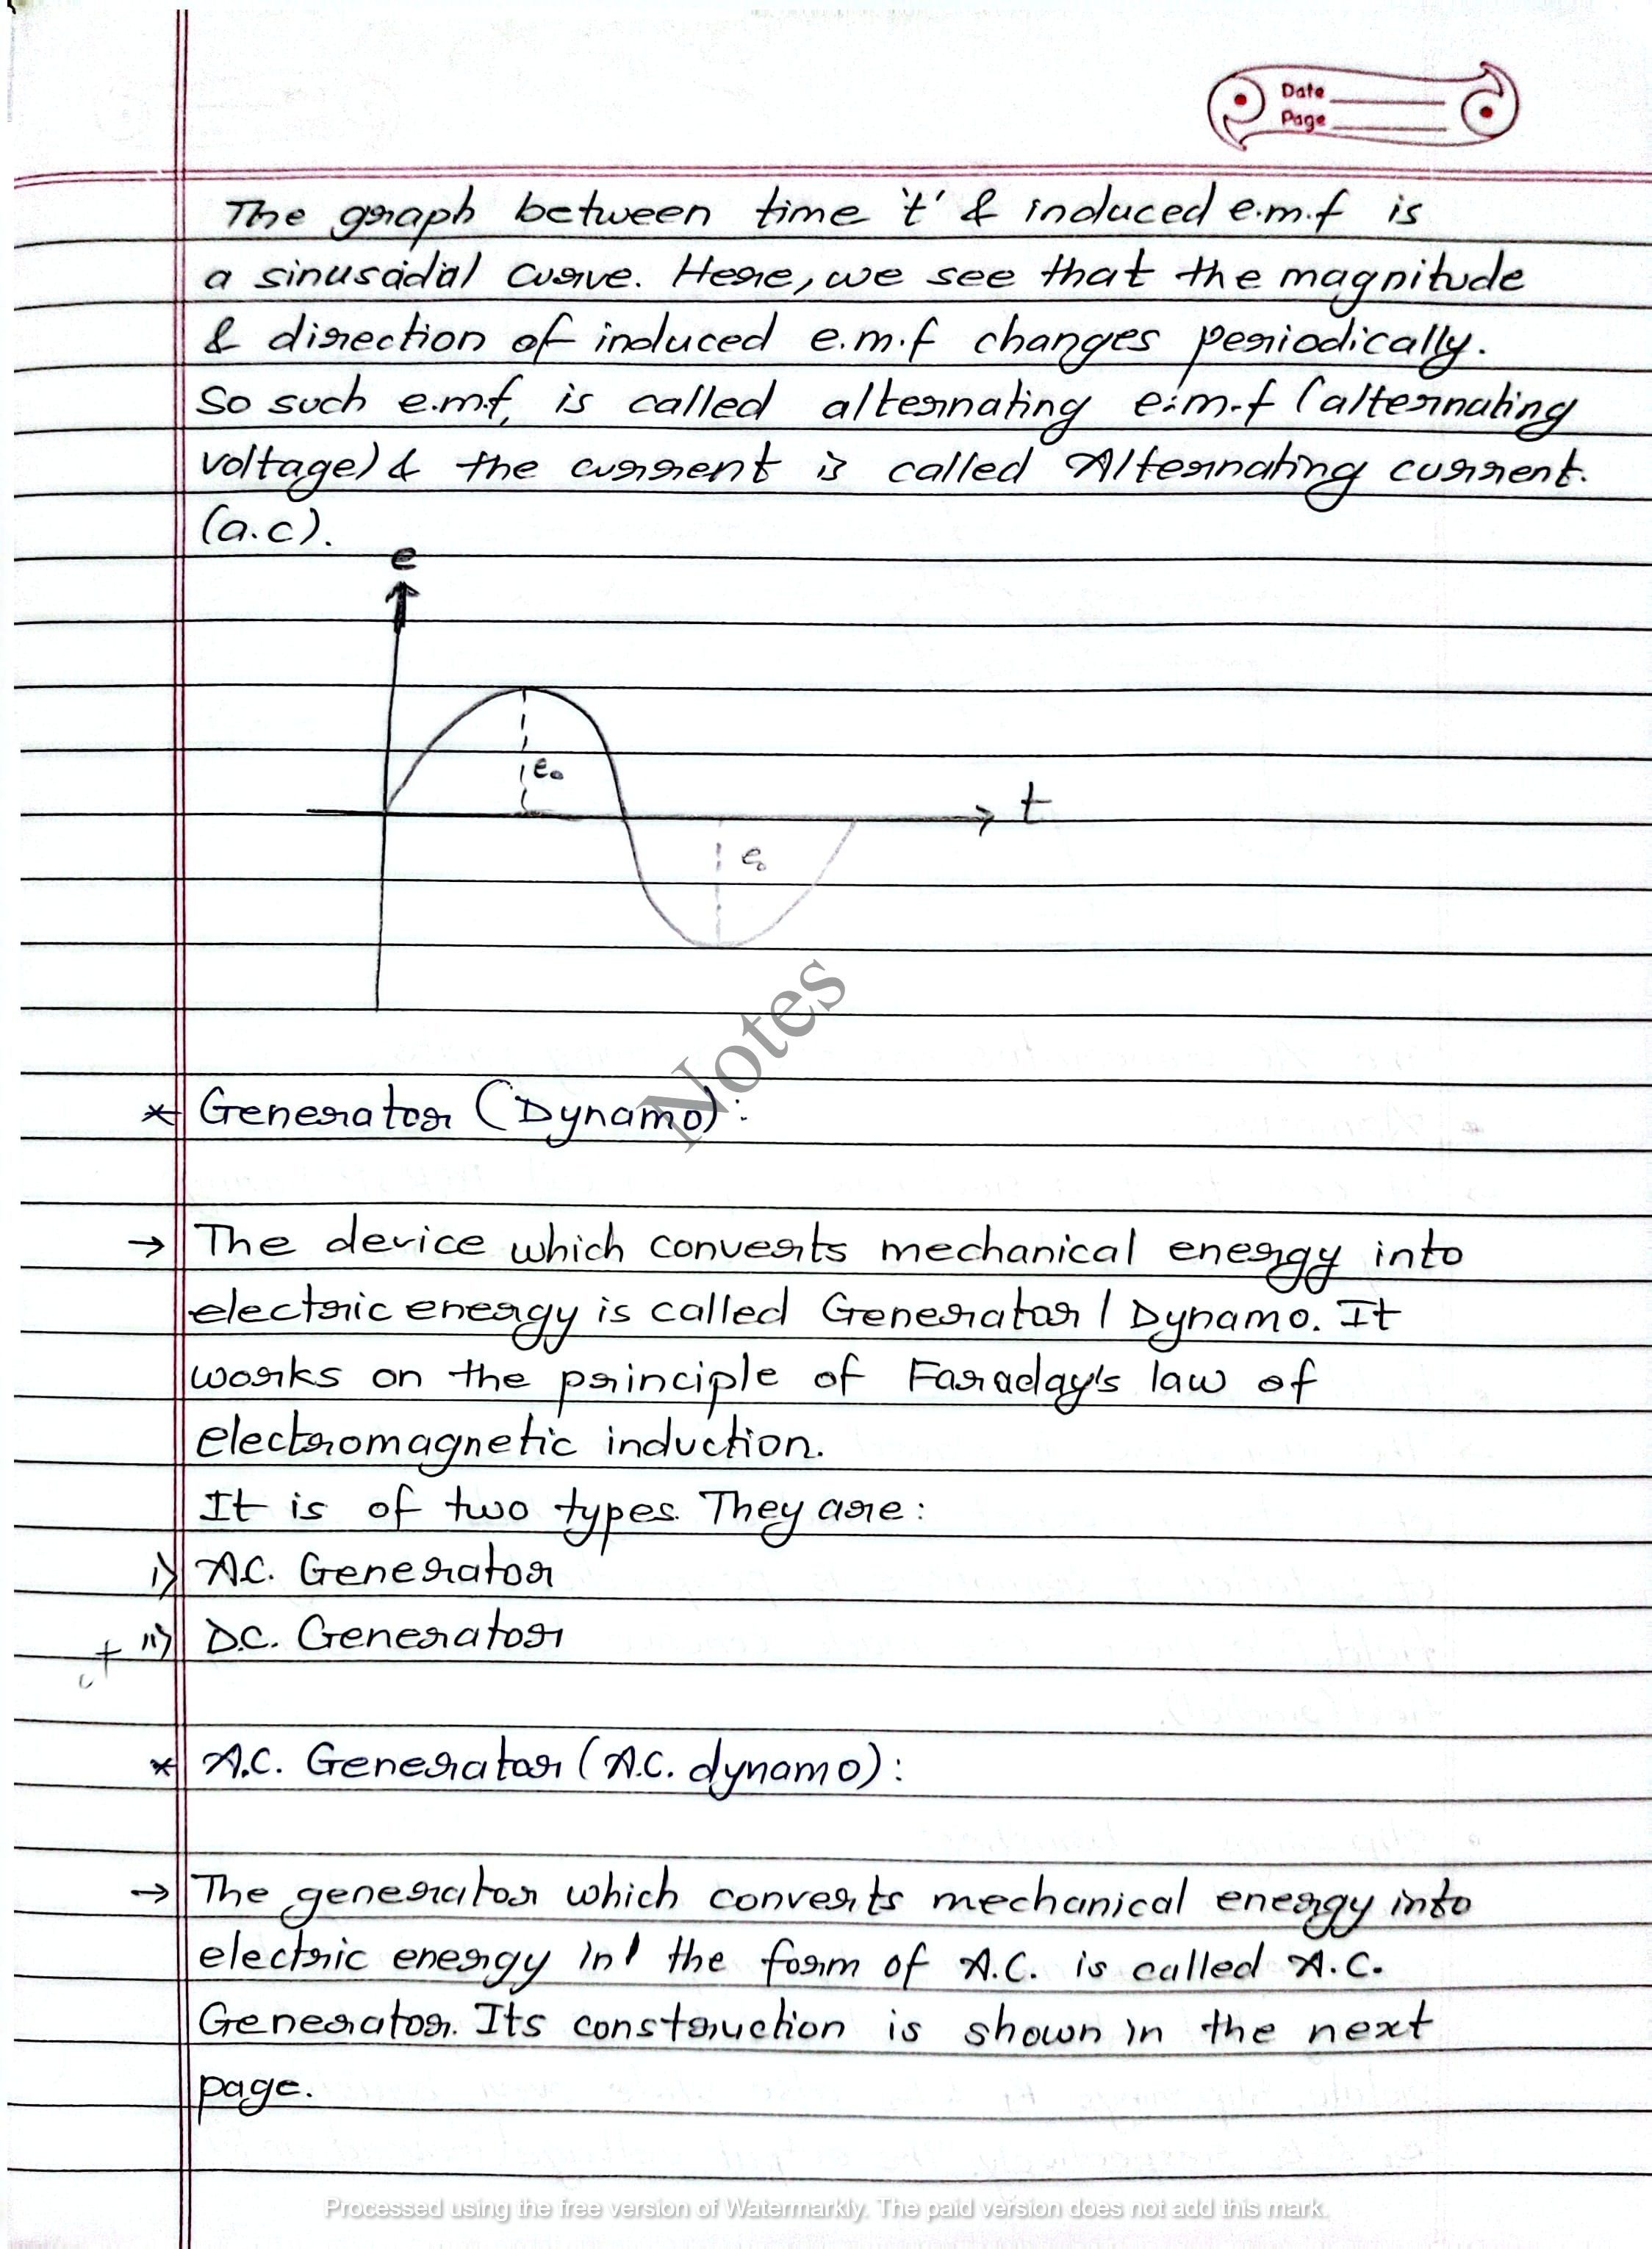 Date
Page
The graph between time 't' & induced e.m.f is
a sinusadal curve. Here, we see that the magnitude
& direction of induced e.m.f changes periodically.
So such e.m.f, is called alternating e.m.f (alternating
voltage) & the current is called Alternating current.
(a.c).
e
e₀
t
e₀
Notes
* Generator (Dynamo):
→ The device which converts mechanical energy into
electric energy is called Generator / Dynamo. It
works on the principle of Faraday's law of
electromagnetic induction.
It is of two types. They are:
i) A.C. Generator
ii) D.C. Generator
* A.C. Generator (A.C. dynamo):
→ The generator which converts mechanical energy into
electric energy in the form of A.C. is called A.C.
Generator. Its construction is shown in the next
page.
Processed using the free version of Watermarkly. The paid version does not add this mark.